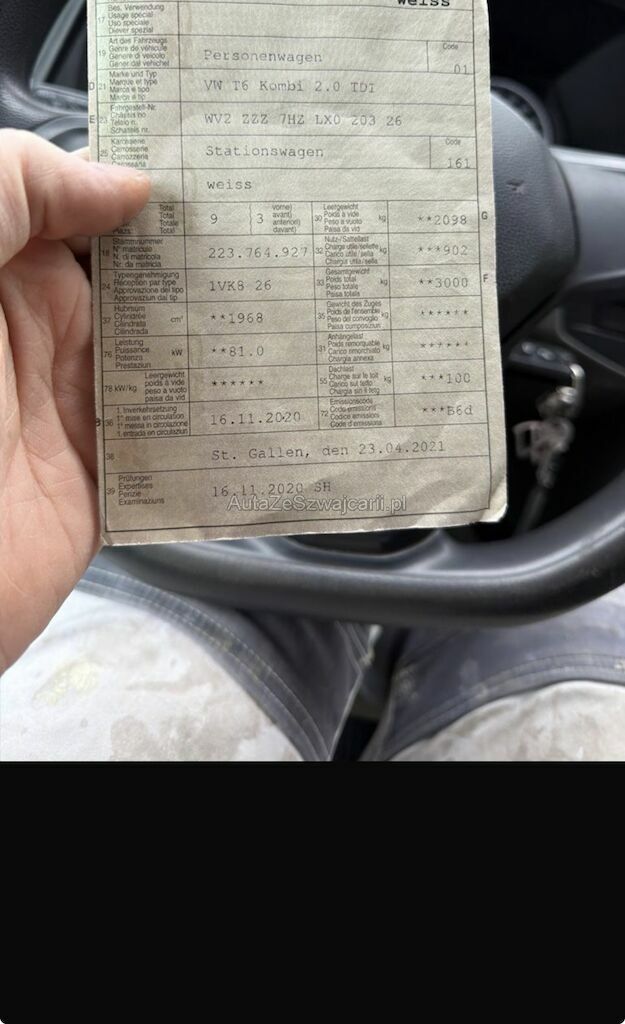 weiss
17 Bes. Verwendung
Usage spécial
Uso speciale
Diever spezial
19 Art des Fahrzeugs
Genre de véhicule
Genere di veicolo
Gener dal vehichel
Personenwagen
Code
01
D 21 Marke und Typ
Marque et type
Marca e tipo
Marca e tip
VW T6 Kombi 2.0 TDI
E 23 Fahrgestell-Nr.
Châssis no
Telaio n.
Schassis nr.
WV2 ZZZ 7HZ LX0 203 26
25 Karosserie
Carrosserie
Carrozzeria
Carossaria
Stationswagen
Code
161
weiss
Total
Total
Totale
Plazs: Total
9 (3 vorne)
avant)
anteriori)
davant)
30 Leergewicht
Poids à vide
Peso a vuoto
Paisa da vid
kg
**2098 G
18 Stammnummer
N° matricule
N. di matricola
Nr. da matricla
223.764.927
32 Nutz-/Sattellast
Charge utile/sellette
Carico utile/sella
Chargia utila/sella
kg
***902
24 Typengenehmigung
Réception par type
Approvazione del tipo
Approvaziun dal tip
1VK8 26
33 Gesamtgewicht
Poids total
Peso totale
Paisa totala
kg
**3000 F
37 Hubraum
Cylindrée
Cilindrata
Cilindrada
cm³
**1968
35 Gewicht des Zuges
Poids de l'ensemble
Peso del convoglio
Paisa cumposiziun
kg
******
76 Leistung
Puissance
Potenza
Prestaziun
kW
**81.0
31 Anhängelast
Poids remorquable
Carico rimorchiato
Chargia annexa
kg
******
78 kW/kg Leergewicht
poids à vide
peso a vuoto
paisa da vid
******
55 Dachlast
Charge sur le toit
Carico sul tetto
Chargia sin il tetg
kg
***100
B 36 1. Inverkehrsetzung
1re mise en circulation
1a messa in circolazione
1. entrada en circulaziun
16.11.2020
72 Emissionscode
Code émissions
Codice emissioni
Code d'emissions
***B6d
38 St. Gallen, den 23.04.2021
39 Prüfungen
Expertises
Perizie
Examinaziuns
16.11.2020 SH
AutaZeSzwajcarii.pl